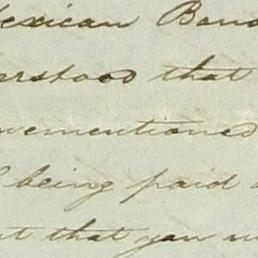 exican Bond
erstood that
vementioned
being paid
t that you